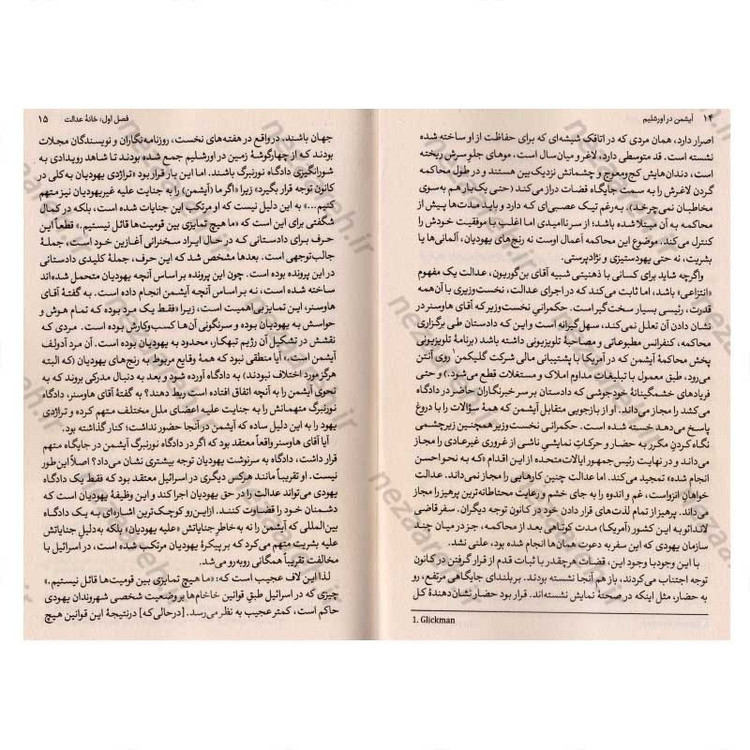 ۱۴ آیشمن در اورشلیم
اصرار دارد، همان مردی که در اتاقک شیشه‌ای که برای حفاظت از او ساخته شده
نشسته است. قد متوسطی دارد، لاغر و میان‌سال است، موهای جلو سرش ریخته
است، دندان‌هایش کج‌ومعوج و چشمانش نزدیک‌بین هستند و در طول محاکمه
گردن لاغرش را به سمت جایگاه قضات دراز می‌کند (حتی یک‌بار هم به‌سوی
مخاطبان نمی‌چرخد). به‌رغم تیک عصبی‌ای که دارد و باید مدت‌ها پیش از
محاکمه به آن مبتلا شده باشد؛ از سرناامیدی اما اغلب با موفقیت خودش را
کنترل می‌کند. موضوع این محاکمه اَعمال اوست نه رنج‌های یهودیان، آلمانی‌ها یا
بشریت، نه حتی یهودستیزی و نژادپرستی.
واگرچه شاید برای کسانی با ذهنیتی شبیه آقای بن‌گوریون، عدالت یک مفهوم
«انتزاعی» باشد، اما ثابت می‌کند که در اجرای عدالت، نخست‌وزیری با آن‌همه
قدرت، رئیسی بسیار سخت‌گیر است. حکمرانی نخست‌وزیر که آقای هاوسنر در
نشان دادن آن تعلل نمی‌کند، سهل‌گیرانه است و این که دادستان طی برگزاری
محاکمه، کنفرانس مطبوعاتی و مصاحبهٔ تلویزیونی داشته باشد (برنامهٔ تلویزیونی
پخش محاکمهٔ آیشمن که در آمریکا با پشتیبانی مالی شرکت گلیکمن¹ روی آنتن
می‌رود، طبق معمول با تبلیغات مداوم املاک و مستغلات قطع می‌شود.) و حتی
فریادهای خشمگینانهٔ خودجوشی که دادستان بر سر خبرنگاران حاضر در دادگاه
می‌کشد را مجاز می‌داند. او از بازجویی متقابل آیشمن که همهٔ سؤالات را با دروغ
پاسخ می‌دهد خسته شده است. حکمرانی نخست‌وزیر همچنین زیرچشمی
نگاه کردن مکرر به حضار و حرکات نمایشی ناشی از غروری غیرعادی را مجاز
می‌داند و در نهایت رئیس‌جمهور ایالات‌متحده از این اقدام «که به نحو احسن
انجام شده» تمجید می‌کند. اما عدالت چنین کارهایی را مجاز نمی‌داند. عدالت
خواهان انزواست، غم و اندوه را به جای خشم و رعایت محتاطانه‌ترین پرهیز را مجاز
می‌داند. پرهیز از تمام لذت‌های قرار دادن خود در کانون توجه دیگران. سفر قاضی
لاندائو به این کشور (آمریکا) مدت کوتاهی بعد از محاکمه، جز در میان چند
سازمان یهودی که این سفر به دعوت همان‌ها انجام شده بود، علنی نشد.
با این وجود با وجود این، قضات هرچقدر با ثبات قدم از قرار گرفتن در کانون
توجه اجتناب می‌کردند، باز هم آنجا نشسته بودند. بر بلندای جایگاهی مرتفع، رو
به حضار، مثل اینکه در صحنهٔ نمایش نشسته‌اند. قرار بود حضار نشان‌دهندهٔ کل
1. Glickman
فصل اول: خانهٔ عدالت ۱۵
جهان باشند. در واقع در هفته‌های نخست، روزنامه‌نگاران و نویسندگان مجلات
بودند که از چهارگوشهٔ زمین در اورشلیم جمع شده بودند تا شاهد رویدادی به
شورانگیزی دادگاه نورنبرگ باشند. اما این بار قرار بود «تراژدی یهودیان به کلی در
کانون توجه قرار بگیرد» زیرا «اگر ما (آیشمن) را به جنایت علیه غیریهودیان نیز متهم
کنیم...» به این دلیل نیست که او مرتکب این جنایات شده است، بلکه در کمال
شگفتی برای این است که «ما هیچ تمایزی بین قومیت‌ها قائل نیستیم.» قطعاً این
حرف برای دادستانی که در حال ایراد سخنرانی آغازین خود است، جملهٔ
جالب‌توجهی است. بعدها مشخص شد که این حرف، جملهٔ کلیدی دادستانی
در این پرونده بوده است. چون این پرونده بر اساس آنچه یهودیان متحمل شده‌اند
ساخته شده است، نه بر اساس آنچه آیشمن انجام داده است. به گفتهٔ آقای
هاوسنر، این تمایز بی‌اهمیت است، زیرا «فقط یک مرد بوده که تمام هوش و
حواسش به یهودیان بوده و سرنگونی آن‌ها کسب‌وکارش بوده است. مردی که
نقشش در تشکیل آن رژیم تبهکار، محدود به یهودیان بوده است. آن مرد آدولف
آیشمن است.» آیا منطقی نبود که همهٔ وقایع مربوط به رنج‌های یهودیان (که البته
هرگز مورد اختلاف نبودند) به دادگاه آورده شود و بعد به دنبال مدرکی بروند که به
نحوی آیشمن را به آنچه اتفاق افتاده است ربط دهند؟ به گفته آقای هاوسنر، دادگاه
نورنبرگ متهمانش را به جنایت علیه اعضای ملل مختلف متهم کرده، و تراژدی
یهود را به این دلیل ساده که آیشمن در آنجا حضور نداشت؛ کنار گذاشته بود.
آیا آقای هاوسنر واقعاً معتقد بود که اگر در دادگاه نورنبرگ آیشمن در جایگاه متهم
قرار داشت، دادگاه به سرنوشت یهودیان توجه بیشتری نشان می‌داد؟ اصلاً این‌طور
نیست. او تقریباً مانند هرکس دیگری در اسرائیل معتقد بود که فقط یک دادگاه
یهودی می‌تواند عدالت را در حق یهودیان اجرا کند و این وظیفهٔ یهودیان است که
دشمنان خود را قضاوت کنند. ازاین‌رو کوچک‌ترین اشاره‌ای به یک دادگاه
بین‌المللی که آیشمن را نه به خاطر جنایاتش «علیه یهودیان»، بلکه به‌دلیل جنایاتش
علیه بشریت متهم می‌کرد که بر پیکرهٔ یهودیان مرتکب شده است، در اسرائیل با
مخالفت تقریباً همگانی روبه‌رو می‌شد.
لذا این لاف عجیب است که: «ما هیچ تمایزی بین قومیت‌ها قائل نیستیم.»
چیزی که در اسرائیل طبق قوانین خاخام‌ها بر وضعیت شخصی شهروندان یهودی
حاکم است، کمتر عجیب به نظر می‌رسد. [درحالی‌که] درنتیجهٔ این قوانین هیچ